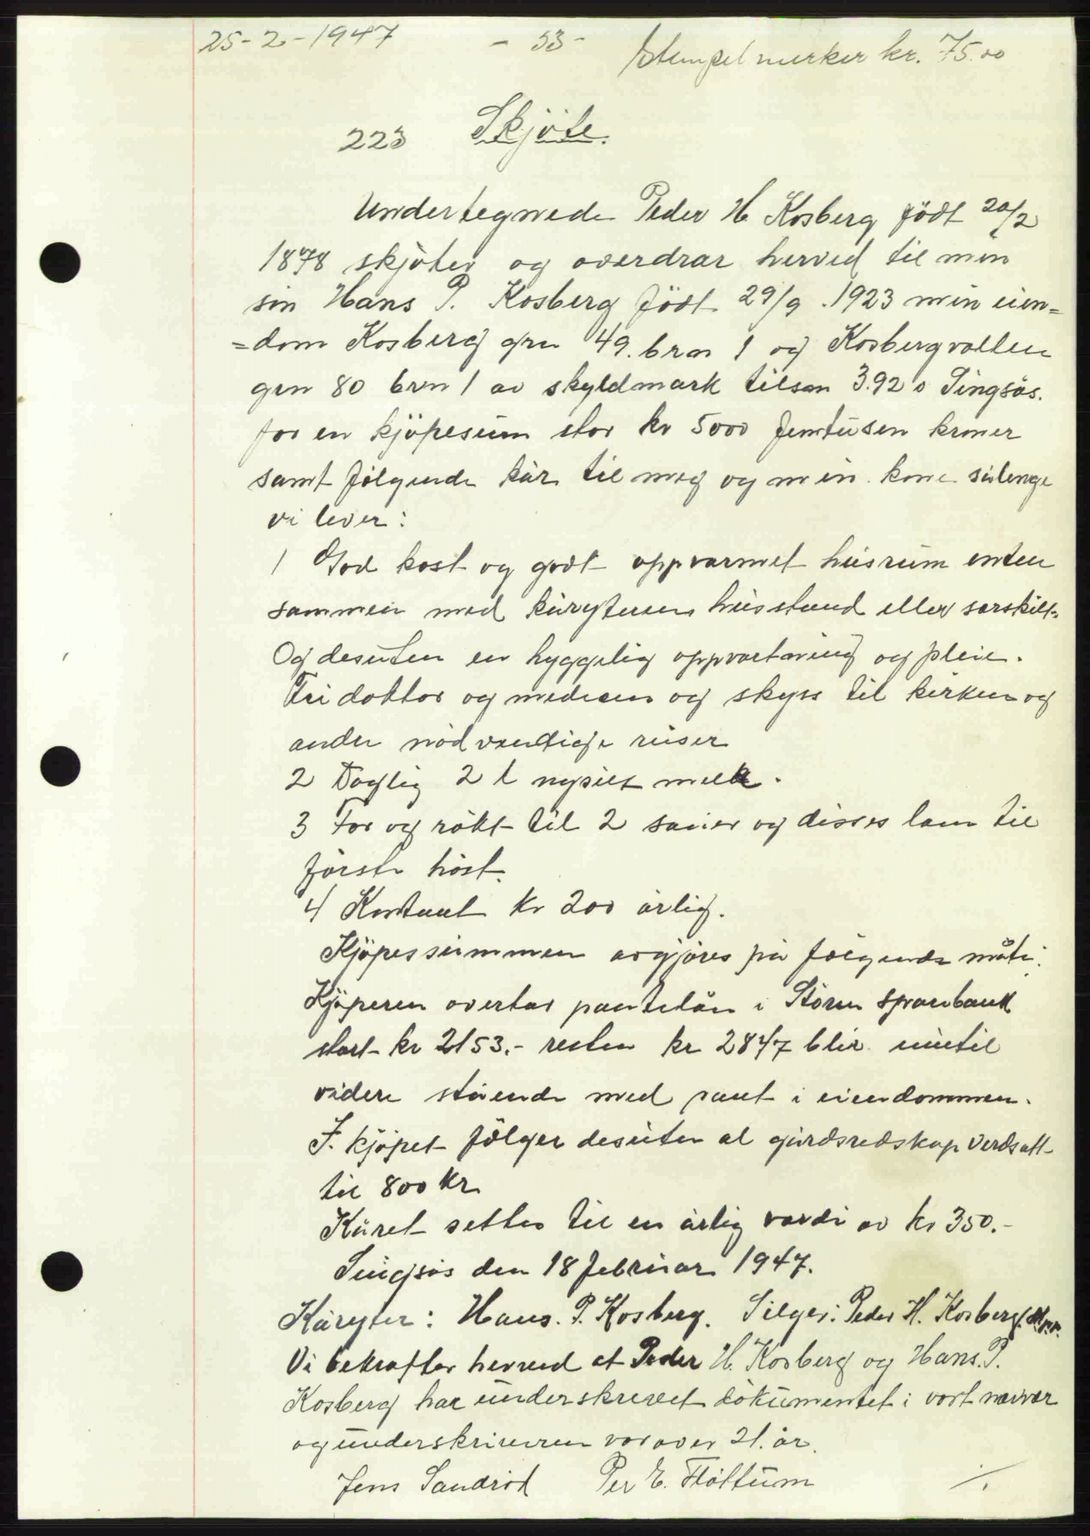 25-2-1947 - 53 - Stempelmerker kr. 75.00
223 Skjöte.
Undertegnede Peder H Kosberg födt 20/2
1878 skjöter og overdrar herved til min
sön Hans P. Kosberg födt 29/9 . 1923 min eien=
=dom Kosberg grn 49. brn 1 og Kosbergvollen
grn 80 brn 1 av skyldmark tilsm 3.92 o Singsås.
for en kjöpesum stor kr 5000 femtusen kroner
samt fölgende kår til meg og min kone sålenge
vi lever:
1 God kost og godt oppvarmet husrum enten
sammen med kåryterens husstand eller serskilt.
Og desuten en hyggelig oppvartning og pleie.
Fri doktor og medesin og skyss til kirken og
andre nödvendige reiser
2 Daglig 2 l nysilt melk.
3 For og rökt til 2 sauer og disses lam til
förste höst.
4 Kontant kr 200 årlig.
Kjöpessummen avgjöres på fölgende måte:
Kjöperen overtar pantelån i Stören sparebank
stort kr 2153.- resten kr 2847 blir inntil
videre stående med pant i eiendommen.
I. kjöpet fölger desuten al gårdsredskap verdsatt
til 800 kr
Kåret settes til en årlig verdi av kr 350.-
Singsås den 18 februar 1947.
Kåryter: Hans. P. Kosberg. Selger: Peder H. Kosberg.
Vi bekrefter herved at Peder H. Kosberg og Hans. P.
Kosberg har underskrevet dokumentet i vort nærvær
og underskriveren var over 21. år.
Jens Sandröd Per E. Flöttum ./.